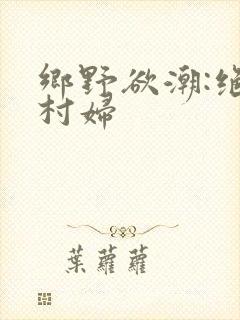 鄉野欲潮:絕
村婦
葉蘿蘿